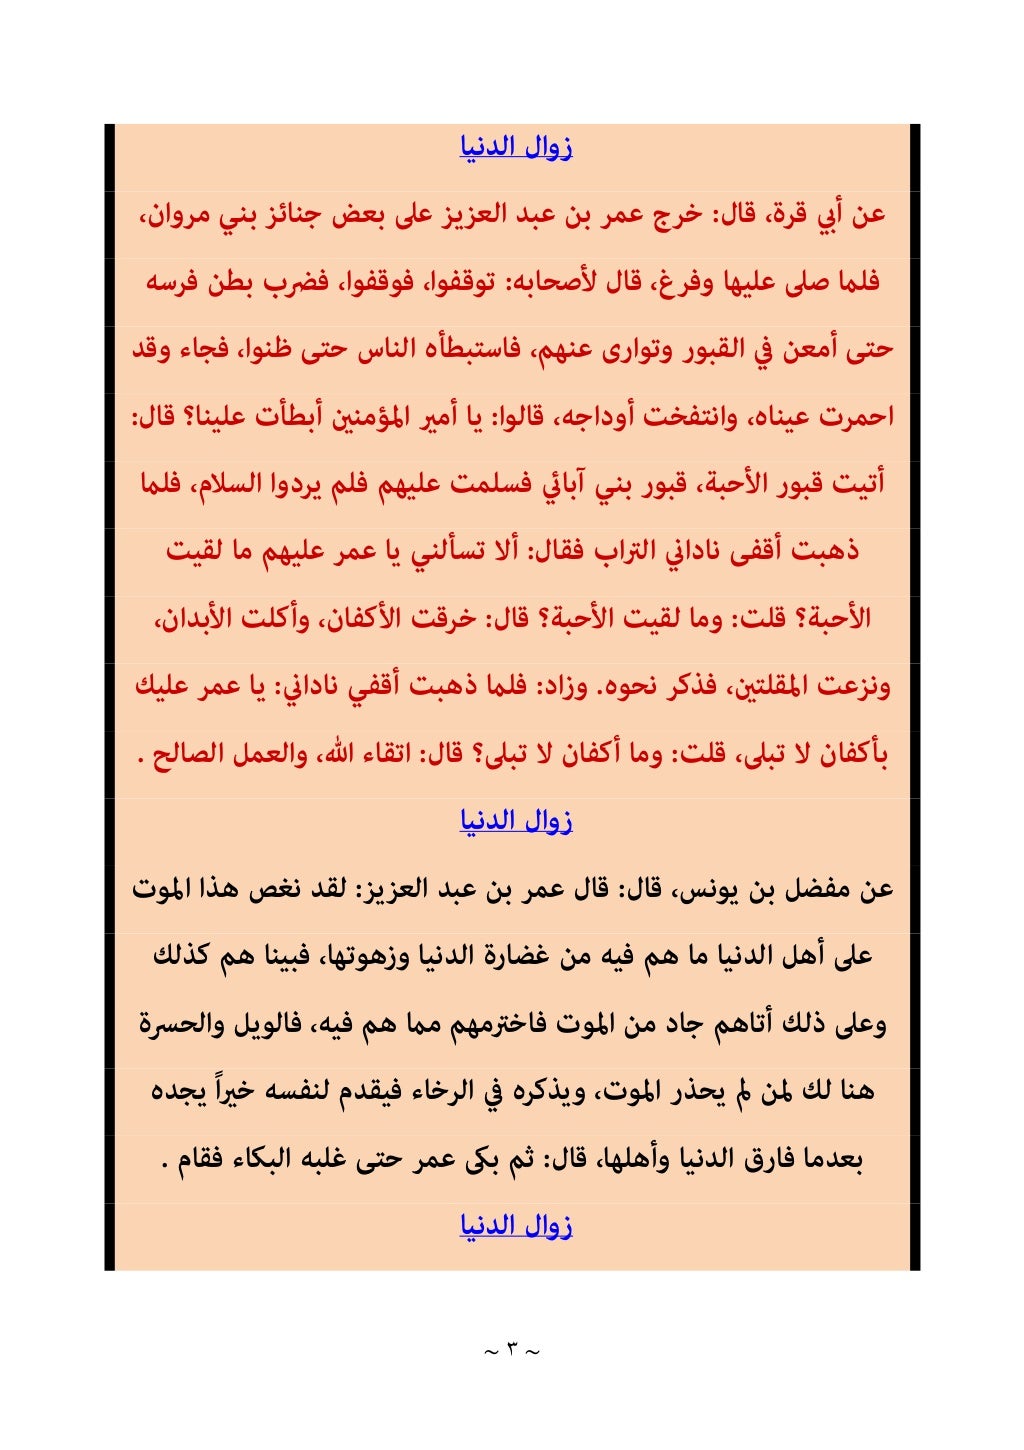 زوال الدنيا
عن أبي قرة، قال: خرج عمر بن عبد العزيز على بعض جنائز بني مروان،
فلما صلى عليها وفرغ، قال لأصحابه: توقفوا، فوقفوا، فضرب بطن فرسه
حتى أمعن في القبور وتوارى عنهم، فاستبطأه الناس حتى ظنوا، فجاء وقد
احمرت عيناه، وانتفخت أوداجه، قالوا: يا أمير المؤمنين أبطأت علينا؟ قال:
أتيت قبور الأحبة، قبور بني آبائي فسلمت عليهم فلم يردوا السلام، فلما
ذهبت أقفى ناداني التراب فقال: ألا تسألني يا عمر عليهم ما لقيت
الأحبة؟ قلت: وما لقيت الأحبة؟ قال: خرقت الأكفان، وأكلت الأبدان،
ونزعت المقلتين، فذكر نحوه. وزاد: فلما ذهبت أقفي ناداني: يا عمر عليك
بأكفان لا تبلى، قلت: وما أكفان لا تبلى؟ قال: اتقاء الله، والعمل الصالح .
زوال الدنيا
عن مفضل بن يونس، قال: قال عمر بن عبد العزيز: لقد نغص هذا الموت
على أهل الدنيا ما هم فيه من غضارة الدنيا وزهوتها، فبينا هم كذلك
وعلى ذلك أتاهم جاد من الموت فاخترمهم مما هم فيه، فالويل والحسرة
هنا لك لمن لم يحذر الموت، ويذكره في الرخاء فيقدم لنفسه خيراً يجده
بعدما فارق الدنيا وأهلها، قال: ثم بكى عمر حتى غلبه البكاء فقام .
زوال الدنيا
~ ٣ ~